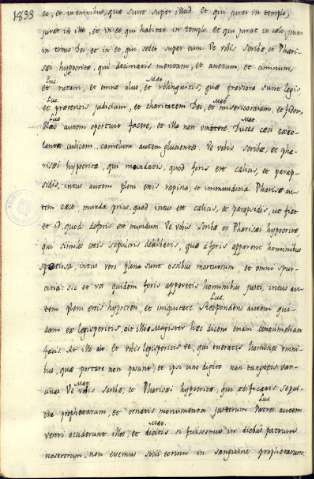 1833
eo, et in omnibus, quæ sunt super illud. Et qui jurat in templo,
jurat in illo, et in eo, qui habitat in templo. et qui jurat in cælo, jurat
in trono Dei, et in eo, qui sedet super eum. Ve vobis Scribæ et Phari-
sæi hypocritæ, qui decimatis mentam, et anetum, et ciminum,
Luc Mat
et rutam, et omne olus, et reliquistis, quæ graviora sunt Legis
Luc Mat
et præteritis judicium, et charitatem Dei, et misericordiam, et fidem,
Luc Mat
Hæc autem oportuit facere, et illa non omittere Duces cæci exco-
lantes culicem, camelum autem glutientes. Ve vobis scribæ, et pha-
risæi hypocritæ, qui mundatis, quod foris est calicis, et parap-
sidis, intus autem pleni estis rapina, et immunditia Pharisæe au-
tem cæce, munda prius, quod intus est calicis, et parapsidis, ut fiat
et id, quod deforis est mundum. Ve vobis Scribæ et Pharisæi hypocritæ
qui similes estis sepulcris dealbatis, quæ a foris apparent hominibus
speciosa, intus vero plena sunt ossibus mortuorum, et omni spur-
citia: sic et vos quidem foris apparetis hominibus justi, intus au-
Luc
tem pleni estis hypocrisi, et iniquitate Respondens autem qui-
dam ex legisperitis, ait illi Magister hæc dicens etiam contumeliam
facis. At ille ait et vobis legisperitis ve, qui oneratis homines oneri-
bus, quæ portare non possunt, et ipsi uno digito non tangitis sar-
Mat
cinas Ve vobis scribæ, et Pharisæi hypocritæ, qui ædificatis sepul-
Luc
chra prophetarum, et ornatis monumenta justorum Patres autem
Mat
vestri occiderunt illos, et dicitis si fuissemus in diebus patrum
nostrorum, non essemus socii eorum in sanguine prophetarum